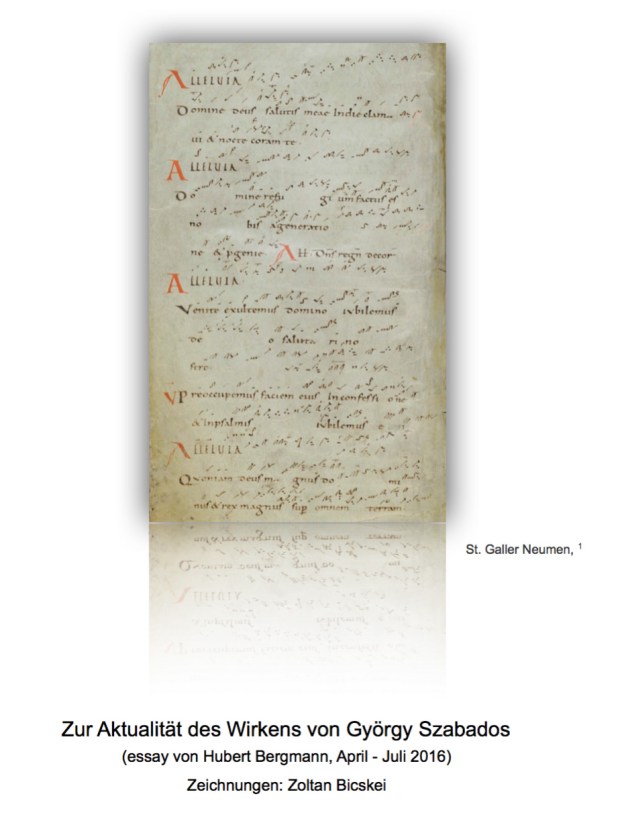 ALLELUIA
Domine deus salutis meae In die clam
ui & nocte coram te
ALLELUIA
Do mine refu gi um factus es
no bis a generatio
ne & pgenie
ALLELUIA
Venite exultemus domino iubilemus
de o saluta ri no
stro
Preoccupemus faciem eius In confessi one
& In psalmis iubilemus
ALLELUIA
Quoniam deus ma gnus do mi
nus & rex magnus sup omnem terram
St. Galler Neumen, 1
Zur Aktualität des Wirkens von György Szabados
(essay von Hubert Bergmann, April - Juli 2016)
Zeichnungen: Zoltan Bicskei